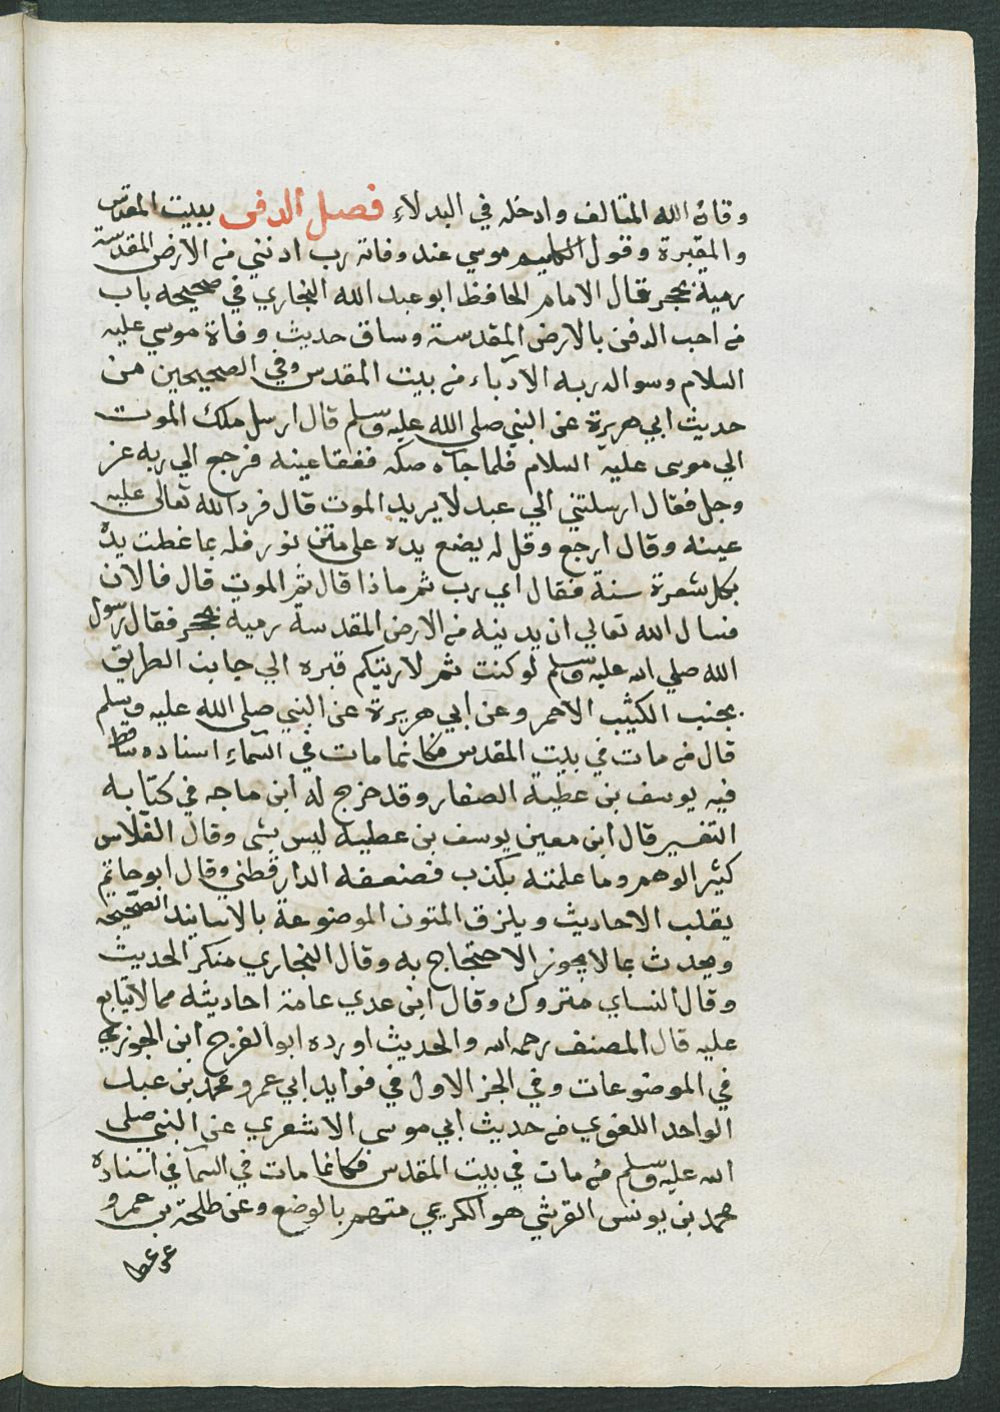 وقاه الله المتالف وادخله في البدلاء فصل الدفن ببيت المقدس
والمقبرة وقول الكليم موسي عند وفاته رب ادنني من الارض المقدسة
رمية بحجر قال الامام الحافظ ابو عبد الله البخاري في صحيحه باب
من احب الدفن بالارض المقدسة وساق حديث وفاة موسي عليه
السلام وسواله ربه الادناء من بيت المقدس وفي الصحيحين من
حديث ابي هريرة عن النبي صلى الله عليه وسلم قال ارسل ملك الموت
الي موسى عليه السلام فلما جاه صكه ففقا عينه فرجع الي ربه عز
وجل فقال ارسلتني الي عبد لا يريد الموت قال فرد الله تعالى عليه
عينه وقال ارجع وقل له يضع يده على متن نور فله بما غطت يده
بكل شعرة سنة فقال اي رب ثم ماذا قال ثم الموت قال فالان
فسال الله تعالي ان يدنيه من الارض المقدسة رمية بحجر فقال رسول
الله صلي الله عليه وسلم لو كنت ثم لاريتكم قبره الي جانب الطريق
بجنب الكثيب الاحمر وعن ابي هريرة عن النبي صلى الله عليه وسلم
قال من مات في بيت المقدس فكانما مات في السماء اسناده ساقط
فيه يوسف بن عطية الصفار وقد خرج له ابن ماجه في كتابه
التفسير قال ابن معين يوسف بن عطيه ليس بشى وقال الفلاس
كثير الوهم وما علمته بكذب فضعفه الدارقطني وقال ابو حاتم
يقلب الاحاديث ويلزق المتون الموضوعة بالاسانيد الصحيحه
ويحدث بما لا يجوز الاحتجاج به وقال البخاري منكر الحديث
وقال النساي متروك وقال ابن عدي عامة احاديثه مما لا يتابع
عليه قال المصنف رحمه الله والحديث اورده ابو الفرج ابن الجوزي
في الموضوعات وفي الجز الاول في فوايد ابي عمرو محمد بن عبد
الواحد اللغوي من حديث ابي موسى الاشعري عن النبي صلى
الله عليه وسلم من مات في بيت المقدس فكانما مات في السمآ في اسناده
محمد بن يونس القرشي هو الكريمي متهم بالوضع وعن طلحة بن عمرو
عن عطا